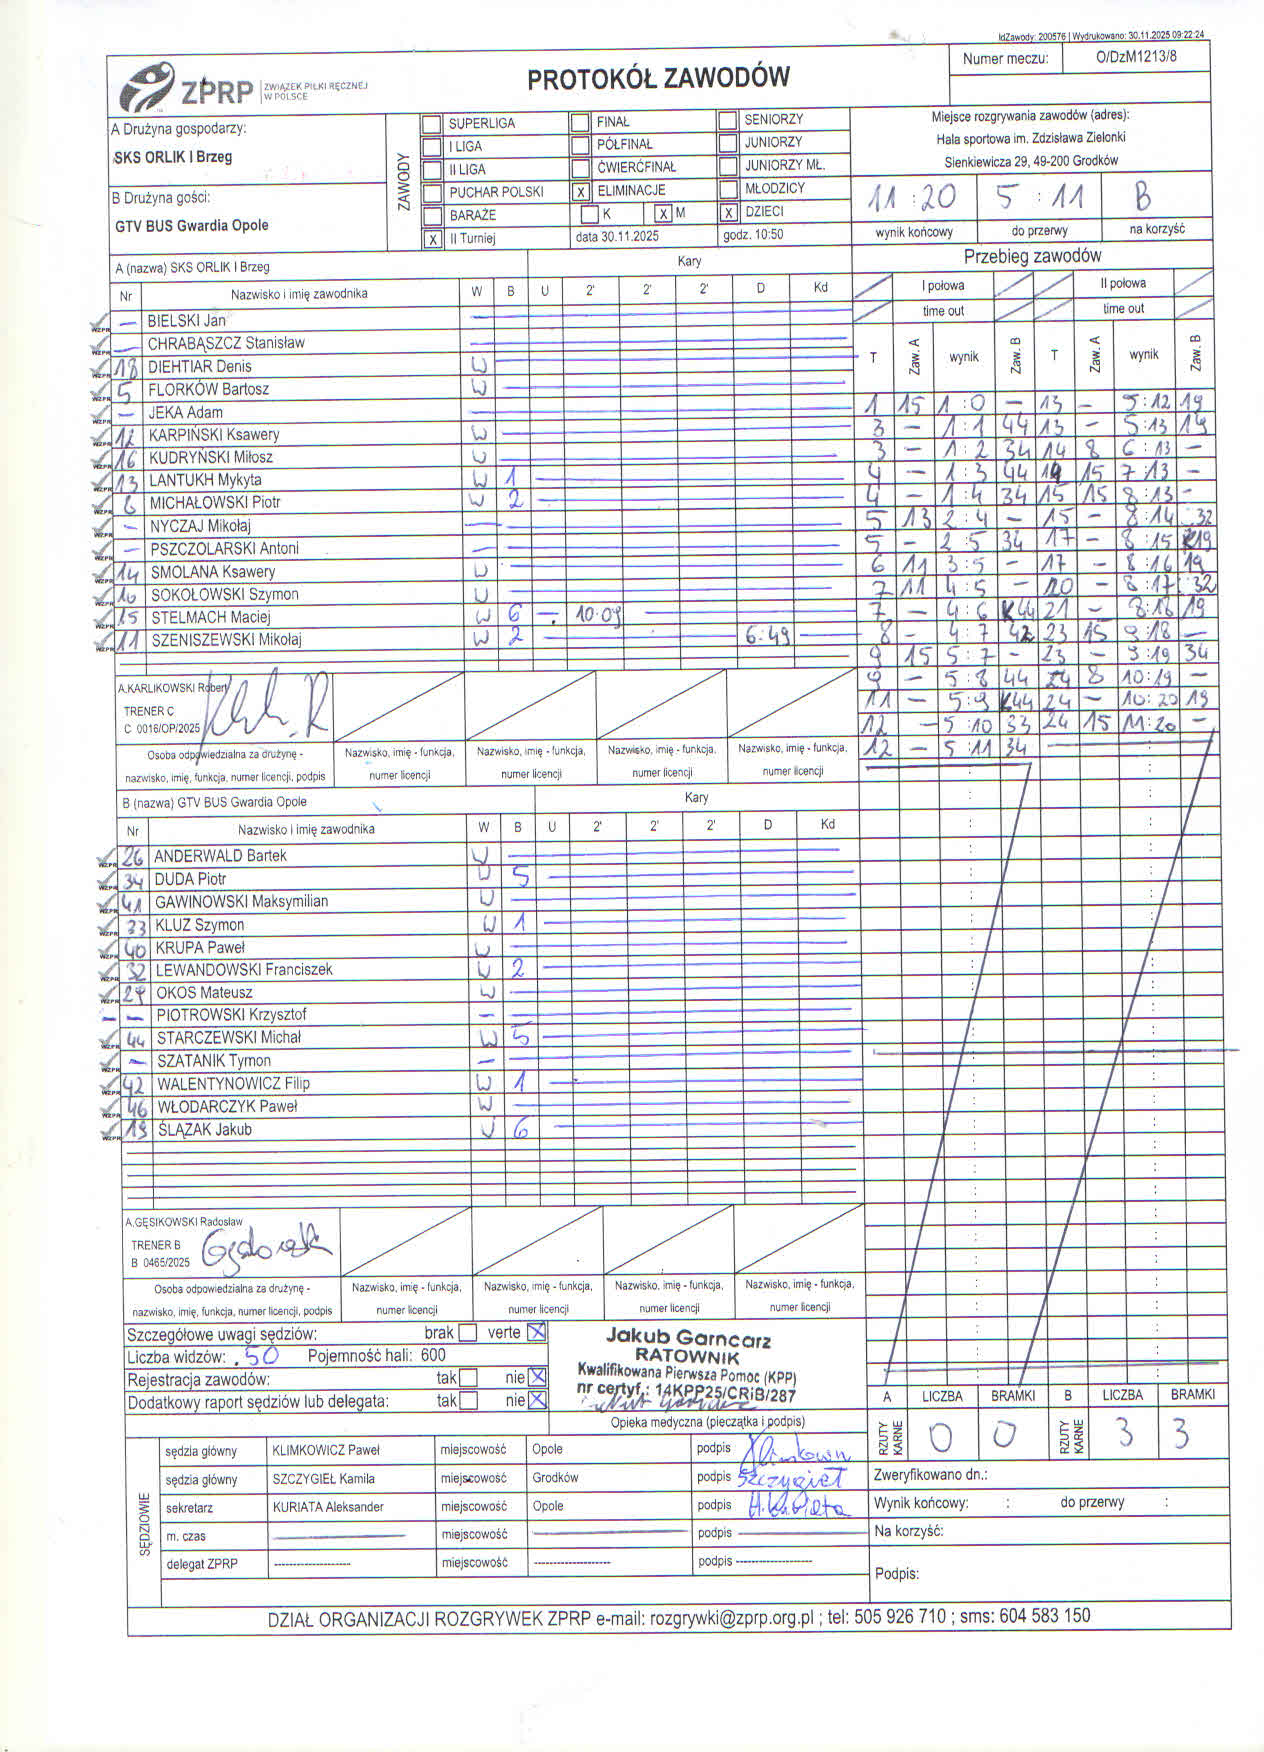 IdZawody: 200576 | Wydrukowano: 30.11.2025 09:22:24
ZPRP ZWIĄZEK PIŁKI RĘCZNEJ W POLSCE
PROTOKÓŁ ZAWODÓW
Numer meczu: O/DzM1213/8
A Drużyna gospodarzy:
SKS ORLIK I Brzeg
B Drużyna gości:
GTV BUS Gwardia Opole
ZAWODY
SUPERLIGA FINAŁ SENIORZY
I LIGA PÓŁFINAŁ JUNIORZY
II LIGA ĆWIERĆFINAŁ JUNIORZY MŁ.
PUCHAR POLSKI X ELIMINACJE MŁODZICY
BARAŻE K X M X DZIECI
X II Turniej data 30.11.2025 godz. 10:50
Miejsce rozgrywania zawodów (adres):
Hala sportowa im. Zdzisława Zielonki
Sienkiewicza 29, 49-200 Grodków
11:20 5:11 B
wynik końcowy do przerwy na korzyść
A (nazwa) SKS ORLIK I Brzeg Kary
Nr Nazwisko i imię zawodnika W B U 2' 2' 2' D Kd
— BIELSKI Jan
— CHRABĄSZCZ Stanisław
18 DIEHTIAR Denis W
5 FLORKÓW Bartosz W
— JEKA Adam
12 KARPIŃSKI Ksawery W
16 KUDRYŃSKI Miłosz W
13 LANTUKH Mykyta W 1
MICHAŁOWSKI Piotr W 2
— NYCZAJ Mikołaj
— PSZCZOLARSKI Antoni
14 SMOLANA Ksawery W
10 SOKOŁOWSKI Szymon W
15 STELMACH Maciej W 6 — 10:09
11 SZENISZEWSKI Mikołaj W 2 6:49
A.KARLIKOWSKI Robert
TRENER C
C 0016/OP/2025
Osoba odpowiedzialna za drużynę - nazwisko, imię, funkcja, numer licencji, podpis
Nazwisko, imię - funkcja, numer licencji
Nazwisko, imię - funkcja, numer licencji
Nazwisko, imię - funkcja, numer licencji
Nazwisko, imię - funkcja, numer licencji
B (nazwa) GTV BUS Gwardia Opole Kary
Nr Nazwisko i imię zawodnika W B U 2' 2' 2' D Kd
26 ANDERWALD Bartek W
34 DUDA Piotr W 5
41 GAWINOWSKI Maksymilian W
33 KLUZ Szymon W 1
40 KRUPA Paweł W
32 LEWANDOWSKI Franciszek W 2
29 OKOS Mateusz W
— PIOTROWSKI Krzysztof —
44 STARCZEWSKI Michał W 5
— SZATANIK Tymon —
42 WALENTYNOWICZ Filip W 1
46 WŁODARCZYK Paweł W
19 ŚLĄZAK Jakub W 6
A.GĘSIKOWSKI Radosław
TRENER B
B 0465/2025
Osoba odpowiedzialna za drużynę - nazwisko, imię, funkcja, numer licencji, podpis
Nazwisko, imię - funkcja, numer licencji
Nazwisko, imię - funkcja, numer licencji
Nazwisko, imię - funkcja, numer licencji
Nazwisko, imię - funkcja, numer licencji
Przebieg zawodów
I połowa II połowa
time out time out
T Zaw. A wynik Zaw. B T Zaw. A wynik Zaw. B
1 15 1:0 — 13 — 5:12 19
3 — 1:1 44 13 — 5:13 19
3 — 1:2 34 14 8 6:13 —
4 — 1:3 44 14 15 7:13 —
4 — 1:4 34 15 15 8:13 —
5 13 2:4 — 15 — 8:14 32
5 — 2:5 34 17 — 8:15 K19
6 11 3:5 — 17 — 8:16 19
7 11 4:5 — 20 — 8:17 32
7 — 4:6 K44 21 — 8:18 19
8 — 4:7 42 23 15 9:18 —
9 15 5:7 — 23 — 9:19 34
9 — 5:8 44 24 8 10:19 —
11 — 5:9 K44 24 — 10:20 19
12 — 5:10 33 24 15 11:20 —
12 — 5:11 34
Szczegółowe uwagi sędziów: brak verte X
Liczba widzów: 50 Pojemność hali: 600
Rejestracja zawodów: tak nie X
Dodatkowy raport sędziów lub delegata: tak nie X
Jakub Garncarz
RATOWNIK
Kwalifikowana Pierwsza Pomoc (KPP)
nr certyf.: 14KPP25/CRiB/287
Opieka medyczna (pieczątka i podpis)
A LICZBA BRAMKI B LICZBA BRAMKI
RZUTY KARNE 0 0 RZUTY KARNE 3 3
SĘDZIOWIE
sędzia główny KLIMKOWICZ Paweł miejscowość Opole podpis
sędzia główny SZCZYGIEŁ Kamila miejscowość Grodków podpis Szczygieł
sekretarz KURIATA Aleksander miejscowość Opole podpis
m. czas miejscowość podpis
delegat ZPRP -------------------- miejscowość -------------------- podpis --------------------
Zweryfikowano dn.:
Wynik końcowy: : do przerwy :
Na korzyść:
Podpis:
DZIAŁ ORGANIZACJI ROZGRYWEK ZPRP e-mail: rozgrywki@zprp.org.pl ; tel: 505 926 710 ; sms: 604 583 150